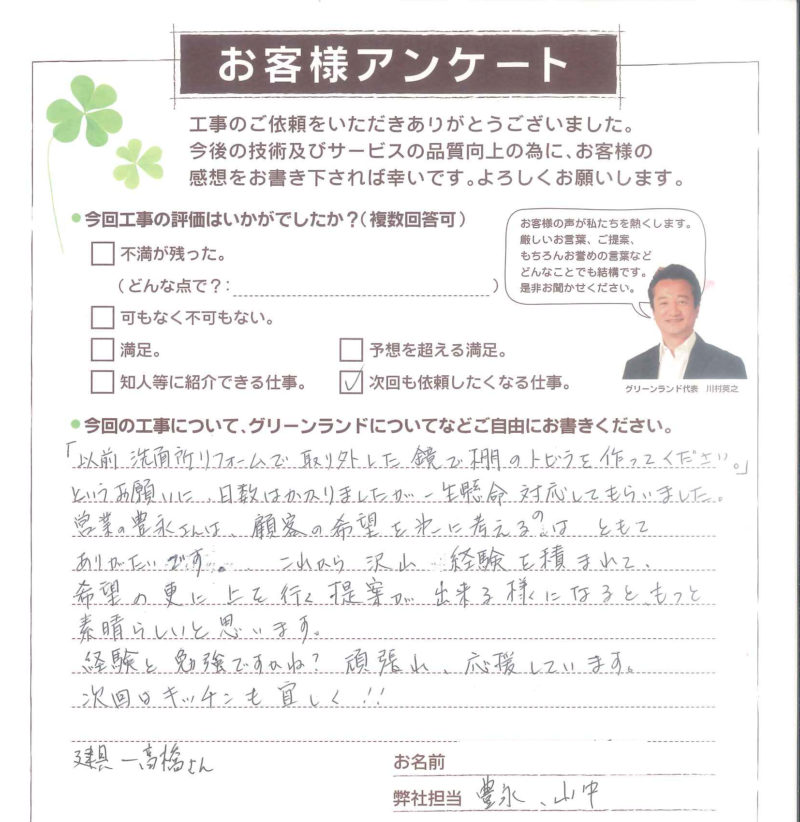 お客様アンケート
工事のご依頼をいただきありがとうございました。
今後の技術及びサービスの品質向上の為に、お客様の
感想をお書き下されば幸いです。よろしくお願いします。
●今回工事の評価はいかがでしたか?(複数回答可)
お客様の声が私たちを熱くします。
厳しいお言葉、ご提案、
もちろんお誉めの言葉など
どんなことでも結構です。
是非お聞かせください。
不満が残った。
(どんな点で?: )
可もなく不可もない。
満足。 予想を超える満足。
知人等に紹介できる仕事。 ✓ 次回も依頼したくなる仕事。
グリーンランド代表 川村英之
●今回の工事について、グリーンランドについてなどご自由にお書きください。
「以前 洗面所リフォームで 取り外した 鏡で棚のトビラを作ってください。」
というお願いに、日数はかかりましたが一生懸命 対応してもらいました。
営業の豊永さんは、顧客の希望を第一に考えるのは ともて
ありがたいです。 これから 沢山 経験を積まれて、
希望の更に上を行く提案が出来る様になると、もっと
素晴らしいと思います。
経験と勉強ですかね? 頑張れ、応援しています。
次回はキッチンも宜しく!!
建具―高橋さん
お名前
弊社担当 豊永、山中